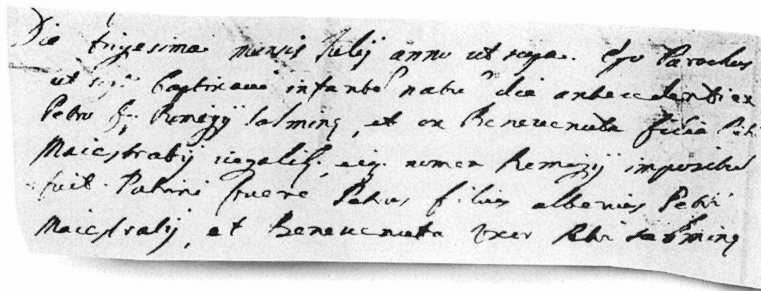 Die trigesima mensis Julij anno ut supra. Ego Parochus
ut sup: baptizavi infante natu die antecedenti ex
Petro q: Remigij Salming, et ex Benevenuta filia Petri
Maiestratij iugalib: eig nomen Remigij impositu
fuit. Patrini fuere Petrus filius alterius Petri
Maiestratij, et Benevenuta uxor Petri Salming